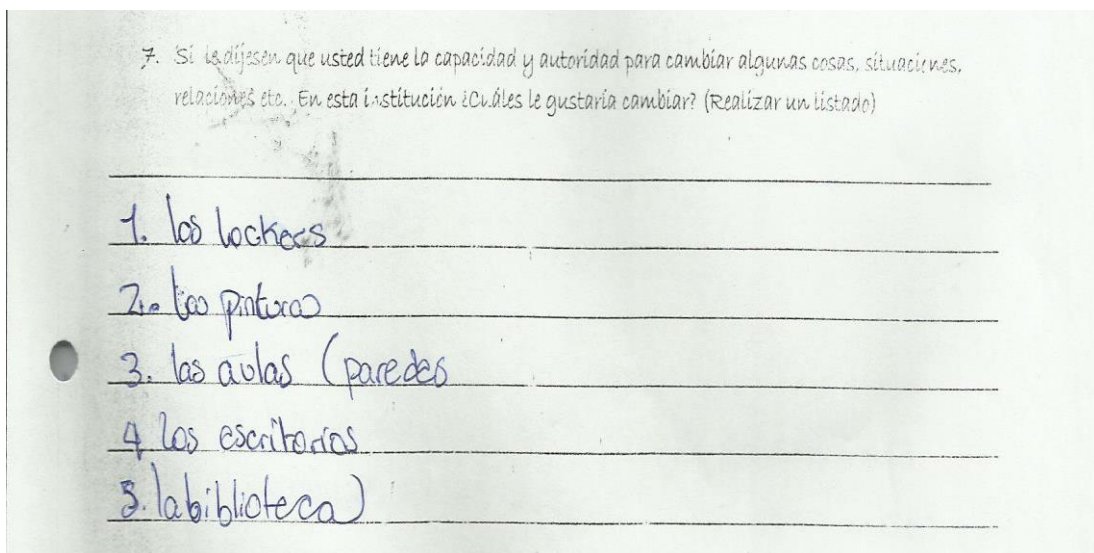 7. Si le dijesen que usted tiene la capacidad y autoridad para cambiar algunas cosas, situaciones,
relaciones etc. En esta institución ¿Cuáles le gustaría cambiar? (Realizar un listado)
1. los lockers
2. las pinturas
3. las aulas (paredes
4 los escritorios
5. la biblioteca)